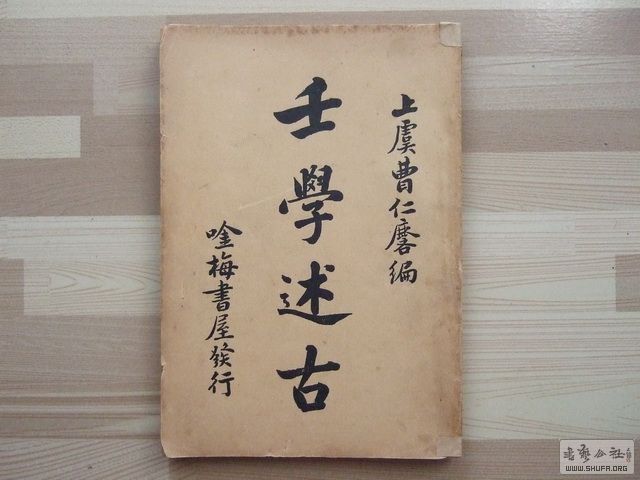 上虞曹仁麐編
壬學述古
唫梅書屋發行
书艺公社
WWW.SHUFA.ORG